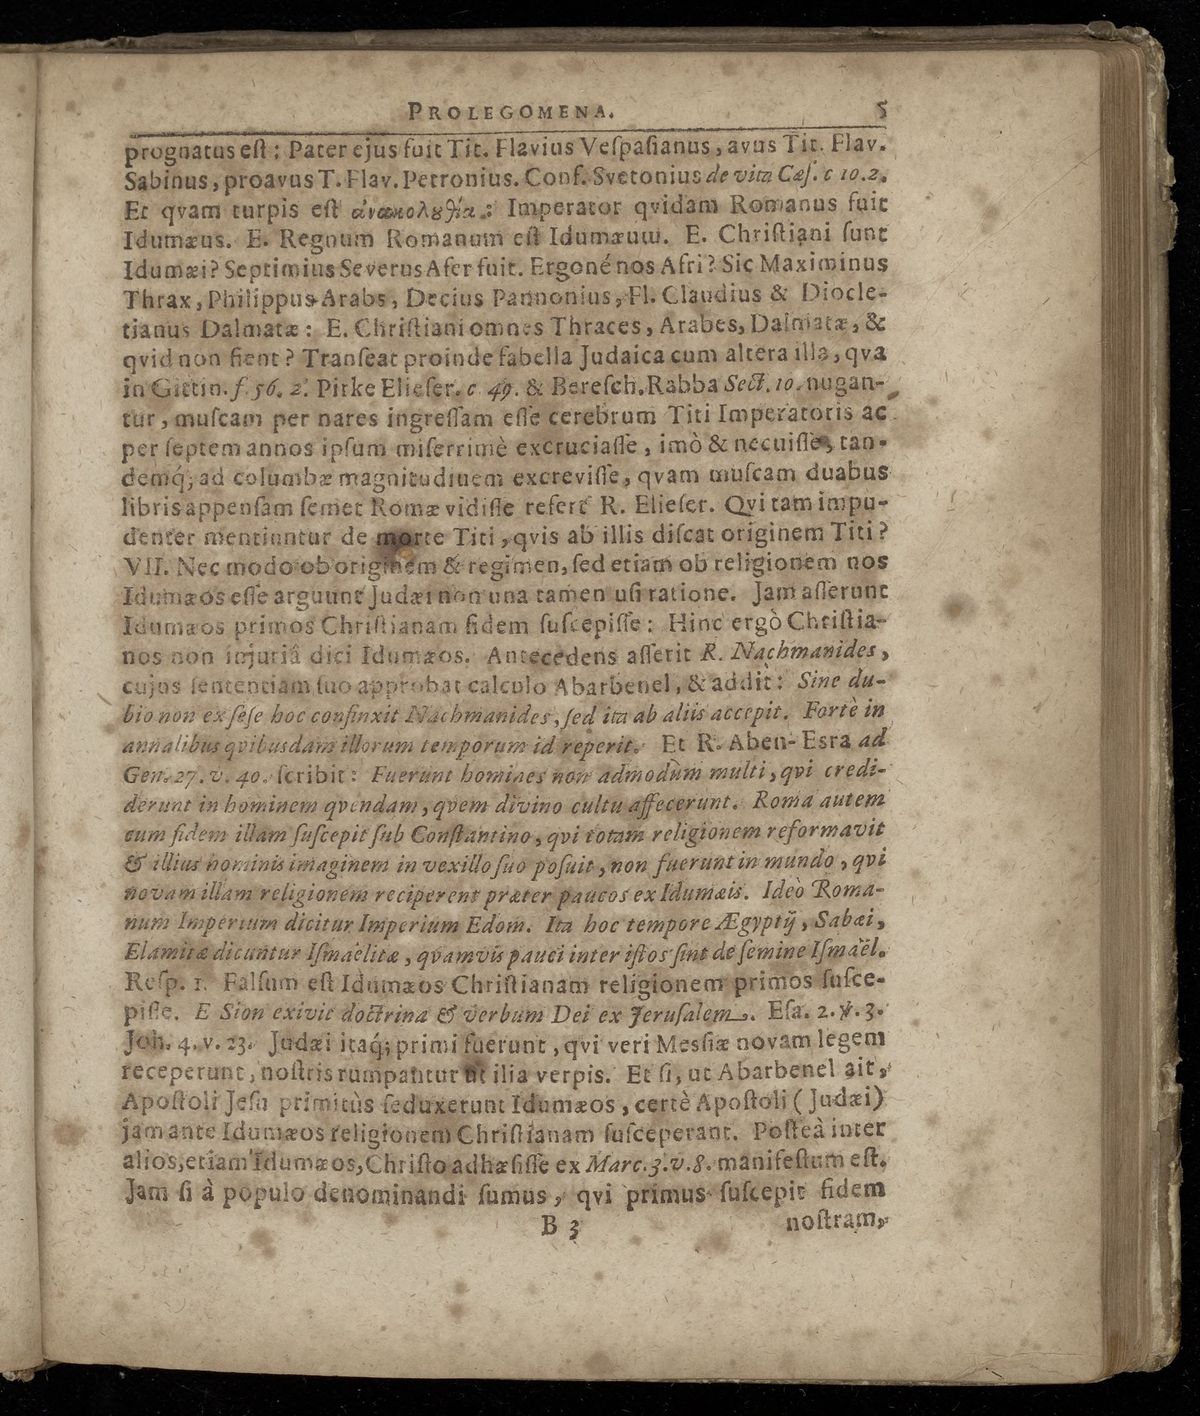 PROLEGOMENA. 5
prognatus eſt: Pater ejus fuit Tit. Flavius Veſpaſianus, avus Tit. Flav.
Sabinus, proavus T. Flav. Petronius. Conf. Svetonius de vita Cæſ. c 10. 2.
Et qvam turpis eſt ἀνακολȣθία: Imperator qvidam Romanus fuit
Idumæus. E. Regnum Romanum eſt Idumæum. E. Chriſtiani ſunt
Idumæi? Septimius Severus Afer fuit. Ergoné nos Afri? Sic Maximinus
Thrax, Philippus Arabs, Decius Pannonius, Fl. Claudius & Diocle-
tianus Dalmatæ: E. Chriſtiani omnes Thraces, Arabes, Dalmatæ, &
qvid non fient? Tranſeat proinde fabella Judaica cum altera illa, qva
in Gittin. f. 56. 2. Pirke Elieſer. c. 49. & Bereſch. Rabba Sect. 10. nugan-
tur, muſcam per nares ingreſſam eſſe cerebrum Titi Imperatoris ac
per ſeptem annos ipſum miſerrimè excruciaſſe, imò & necuiſſe, tan-
demq́; ad columbæ magnitudinem excreviſſe, qvam muſcam duabus
libris appenſam ſemet Romæ vidiſſe refert R. Elieſer. Qvi tam impu-
denter mentiuntur de morte Titi, qvis ab illis diſcat originem Titi?
VII. Nec modo ob originem & regimen, ſed etiam ob religionem nos
Idumæos eſſe arguunt Judæi non una tamen uſi ratione. Jam aſſerunt
Idumæos primos Chriſtianam fidem ſuſcepiſſe: Hinc ergò Chriſtia-
nos non injuriâ dici Idumæos. Antecedens aſſerit R. Nachmanides,
cujus ſententiam ſuo approbat calculo Abarbenel, & addit: Sine du-
bio non ex ſeſe hoc confinxit Nachmanides, ſed ita ab aliis accepit. Fortè in
annalibus qvibusdam illorum temporum id reperit. Et R. Aben-Esra ad
Gen. 27. v. 40. ſcribit: Fuerunt homines non admodùm multi, qvi credi-
derunt in hominem qvendam, qvem divino cultu affecerunt. Roma autem
cum fidem illam ſuſcepit ſub Conſtantino, qvi totam religionem reformavit
& illius hominis imaginem in vexillo ſuo poſuit, non fuerunt in mundo, qvi
novam illam religionem reciperent præter paucos ex Idumæis. Ideò Roma-
num Imperium dicitur Imperium Edom. Ita hoc tempore Ægyptij, Sabæi,
Elamitæ dicuntur Iſmaëlitæ, qvamvis pauci inter iſtos ſint de ſemine Iſmaël.
Reſp. 1. Falſum eſt Idumæos Chriſtianam religionem primos ſuſce-
piſſe. E Sion exivit doctrina & verbum Dei ex Jeruſalem. Eſa. 2. ℣. 3.
Joh. 4. v. 23. Judæi itaq́; primi fuerunt, qvi veri Meſſiæ novam legem
receperunt, noſtris rumpantur ut ilia verpis. Et ſi, ut Abarbenel ait,
Apoſtoli Jeſu primitùs ſeduxerunt Idumæos, certè Apoſtoli (Judæi)
jam ante Idumæos religionem Chriſtianam ſuſceperant. Poſteà inter
alios, etiam Idumæos, Chriſto adhæſiſſe ex Marc. 3. v. 8. manifeſtum eſt.
Jam ſi à populo denominandi ſumus, qvi primus ſuſcepit fidem
B 3 noſtram,